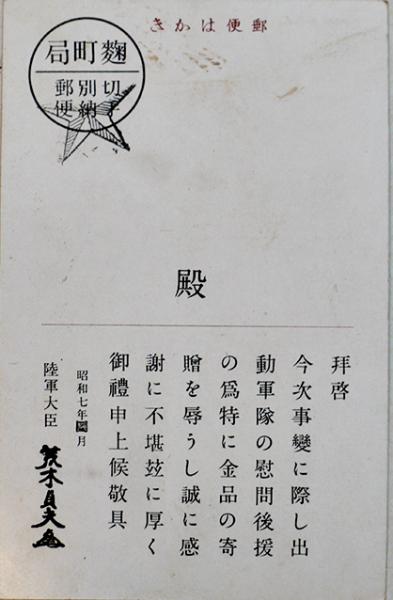 郵便はかき
麴町局
切手別納郵便
殿
拝啓
今次事變に際し出
動軍隊の慰問後援
の爲特に金品の寄
贈を辱うし誠に感
謝に不堪玆に厚く
御禮申上候敬具
昭和七年四月
陸軍大臣
荒木貞夫